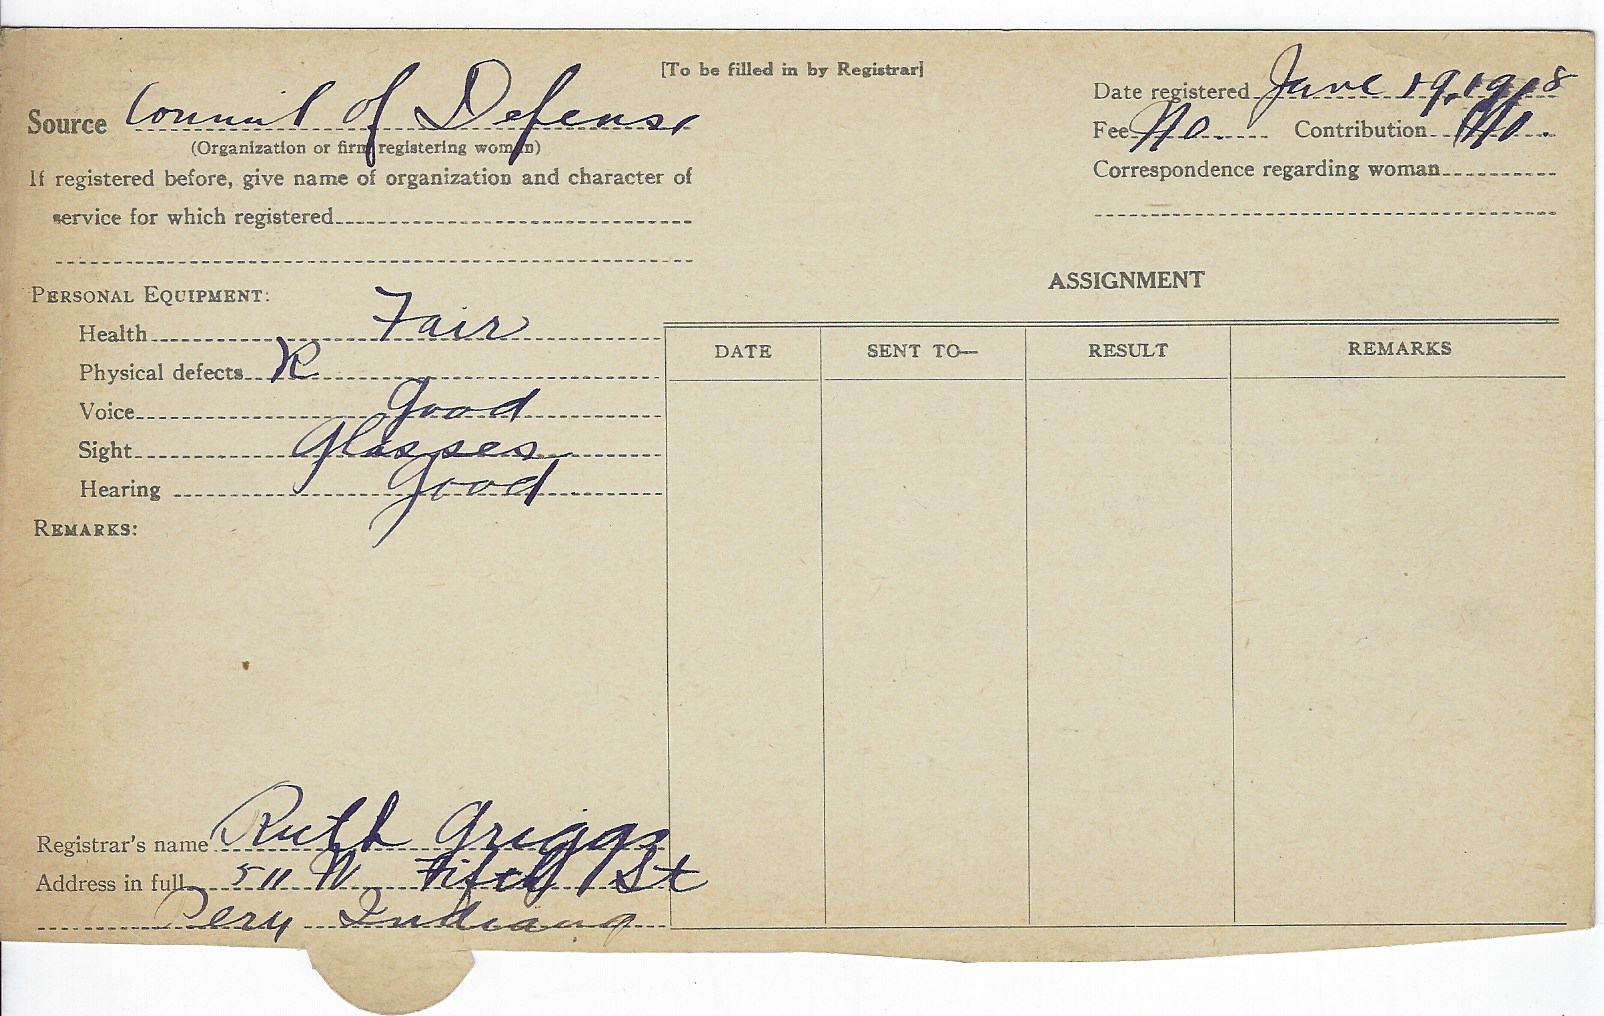 [To be filled in by Registrar]
Source Council of Defense
(Organization or firm registering woman)
If registered before, give name of organization and character of
service for which registered
Date registered June 19, 1918
Fee No. Contribution No.
Correspondence regarding woman
PERSONAL EQUIPMENT:
Health Fair
Physical defects
Voice Good
Sight Glasses
Hearing Good
REMARKS:
ASSIGNMENT
DATE SENT TO— RESULT REMARKS
Registrar's name Ruth Griggs
Address in full 511 W Fifth St
Peru Indiana